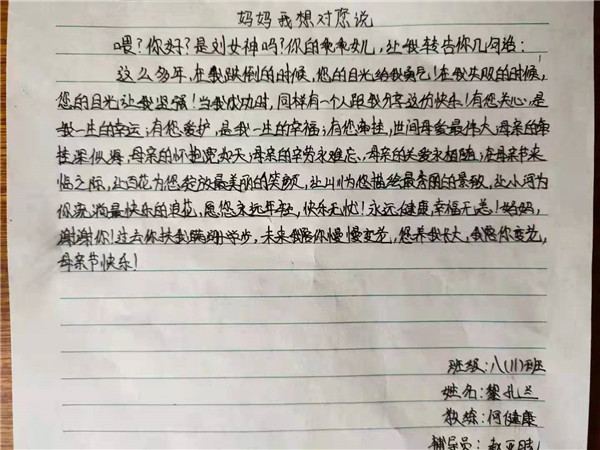 妈妈我想对您说
喂?你好?是刘女神吗?你的乖乖女儿,让我转告你几句话:
这么多年,在我跌倒的时候,您的目光给我勇气!在我失败的时候,
您的目光让我坚强!当我成功时,同样有一个人跟我分享这份快乐!有您关心,是
我一生的幸运,有您爱护,是我一生的幸福;有您牵挂,世间母爱最伟大,母亲的牵
挂深似海,母亲的怀抱宽如天,母亲的辛劳永难忘、母亲的关爱永相随,在母亲节来
临之际,让百花为您绽放最美丽的笑颜,让山川为您描绘最秀丽的景致,让小河为
你流淌最快乐的浪花,愿您永远年轻,快乐无忧!永远健康,幸福无恙!妈妈,
谢谢你!过去你扶我蹒跚学步,未来我陪你慢慢变老,您养我长大,我陪你变老,
母亲节快乐!
班级:八(11)班
姓名:黎孔兰
教练:何健康
辅导员:赵亚